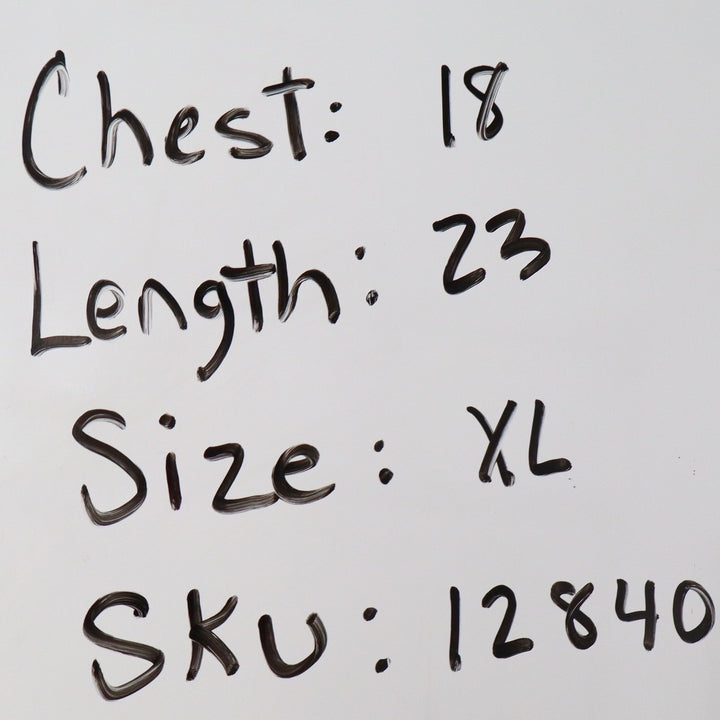 Chest: 18
Length: 23
Size: XL
SKU: 12840